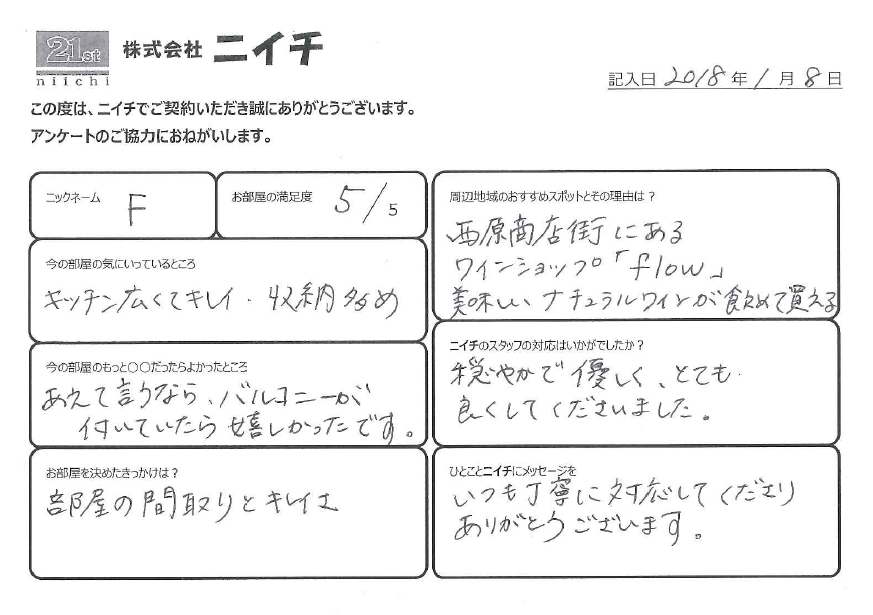 21st
niichi
株式会社 ニイチ
記入日 2018年1月8日
この度は、ニイチでご契約いただき誠にありがとうございます。
アンケートのご協力におねがいします。
ニックネーム
F
お部屋の満足度
5/5
今の部屋の気にいっているところ
キッチン広くてキレイ・収納多め
今の部屋のもっと〇〇だったらよかったところ
あえて言うなら、バルコニーが
付いていたら嬉しかったです。
お部屋を決めたきっかけは?
部屋の間取りとキレイさ
周辺地域のおすすめスポットとその理由は?
西原商店街にある
ワインショップ「flow」
美味しいナチュラルワインが飲めて買える
ニイチのスタッフの対応はいかがでしたか?
穏やかで優しく、とても
良くしてくださいました。
ひとことニイチにメッセージを
いつも丁寧に対応してくださり
ありがとうございます。